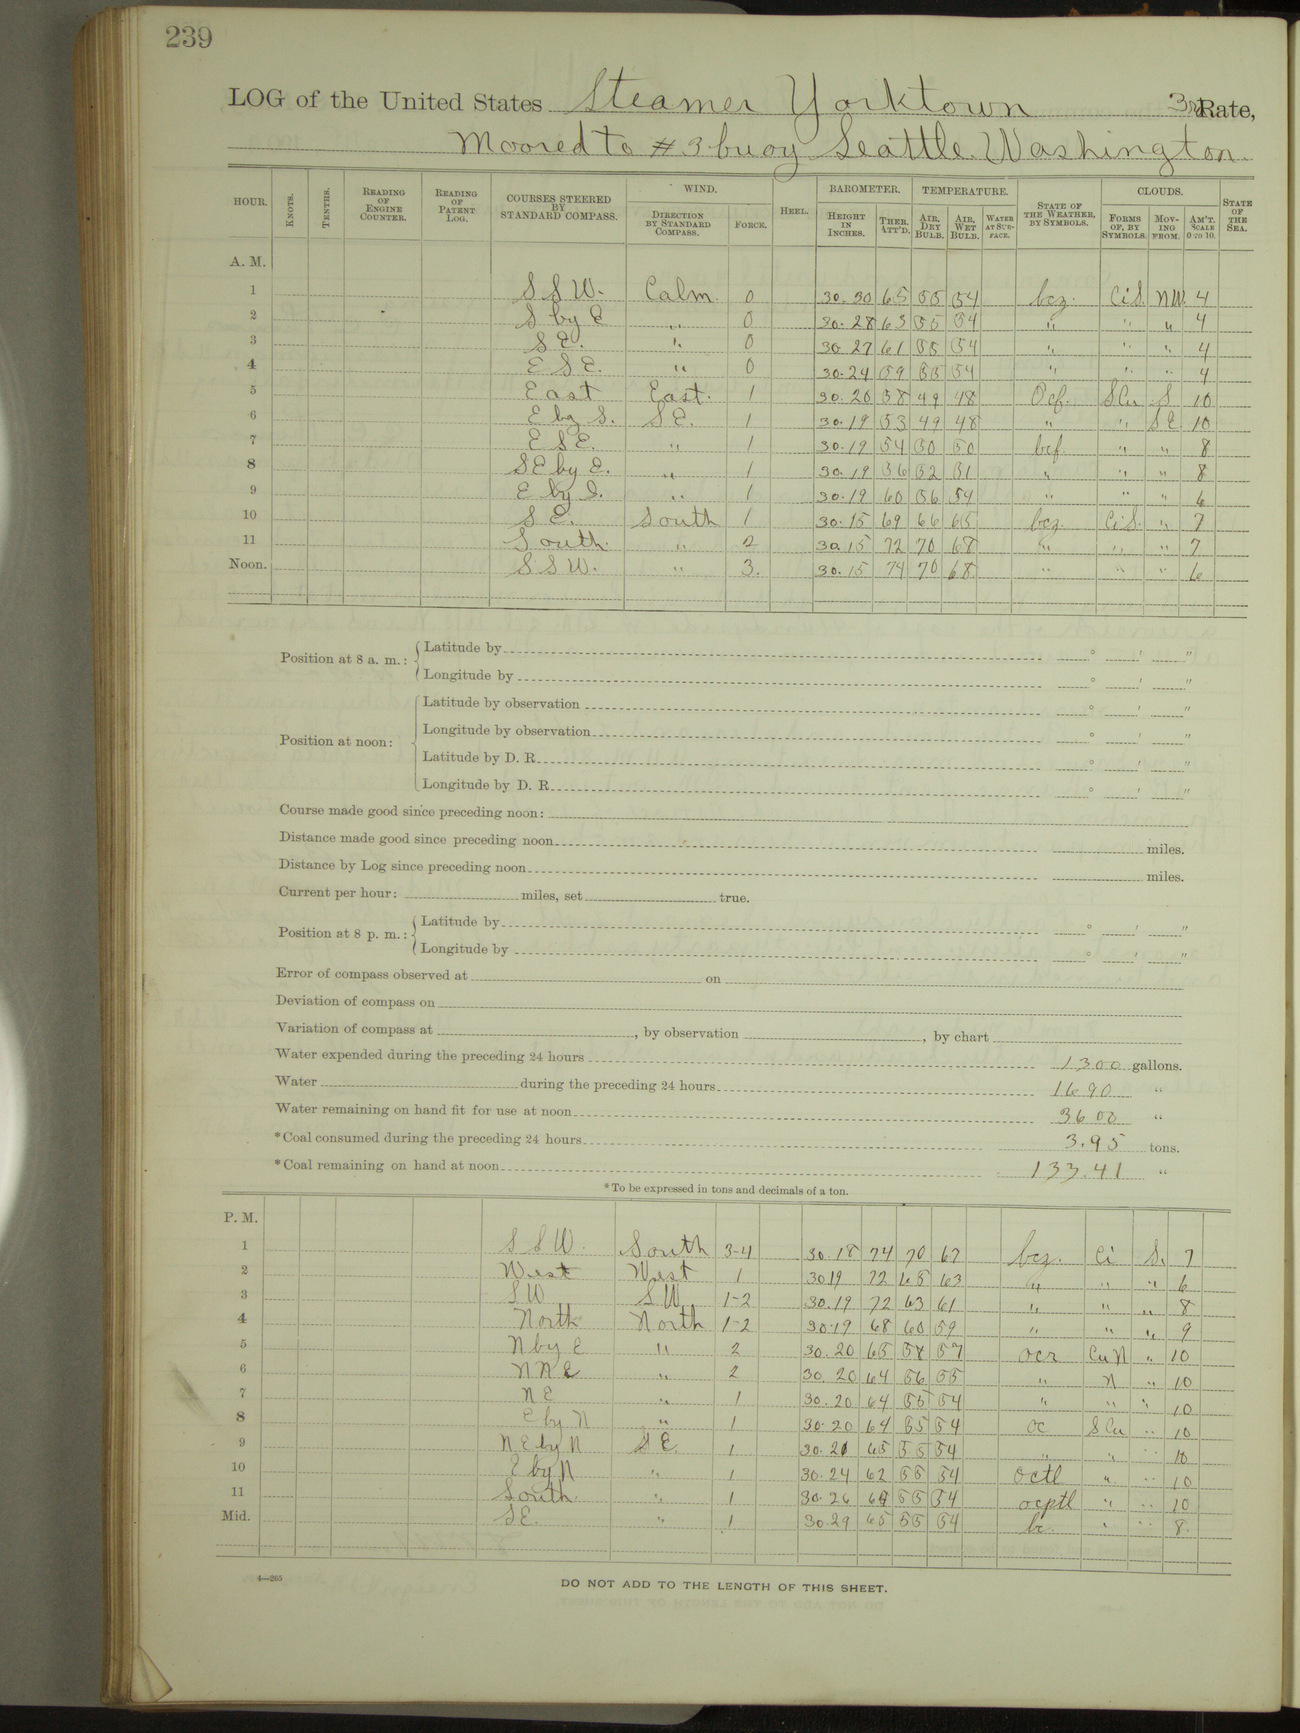 239
LOG of the United States Steamer Yorktown 3rd Rate,
Moored to # 3 buoy Seattle. Washington.
HOUR. KNOTS. TENTHS. READING OF ENGINE COUNTER. READING OF PATENT LOG. COURSES STEERED BY STANDARD COMPASS. WIND. DIRECTION BY STANDARD COMPASS. FORCE. HEEL. BAROMETER. HEIGHT IN INCHES. THER. ATT'D. TEMPERATURE. AIR, DRY BULB. AIR, WET BULB. WATER AT SURFACE. STATE OF THE WEATHER, BY SYMBOLS. CLOUDS. FORMS OF, BY SYMBOLS. MOVING FROM. AM'T. SCALE 0 TO 10. STATE OF THE SEA.
A. M.
1 S S W. Calm. 0 30.30 65 55 54 bcz. CiS. NW. 4
2 S by E " 0 30.28 63 55 54 " " " 4
3 S E. " 0 30.27 61 55 54 " " " 4
4 E S E. " 0 30.24 59 55 54 " " " 4
5 East East. 1 30.20 58 49 48 Ocf. SCu S 10
6 E by S. S E. 1 30.19 53 49 48 " " S E 10
7 E S E. " 1 30.19 54 50 50 bcf. " " 8
8 SE by E. " 1 30.19 56 52 51 " " " 8
9 E by S. " 1 30.19 60 56 54 " " " 6
10 S E. South 1 30.15 69 66 65 bcz. CiS. " 7
11 South. " 2 30.15 72 70 68 " " " 7
Noon. S S W. " 3. 30.15 74 70 68 " " " 6
Position at 8 a. m.: Latitude by ° ' "
Longitude by ° ' "
Position at noon: Latitude by observation ° ' "
Longitude by observation ° ' "
Latitude by D. R. ° ' "
Longitude by D. R. ° ' "
Course made good since preceding noon:
Distance made good since preceding noon miles.
Distance by Log since preceding noon miles.
Current per hour: miles, set true.
Position at 8 p. m.: Latitude by ° ' "
Longitude by ° ' "
Error of compass observed at on
Deviation of compass on
Variation of compass at , by observation , by chart
Water expended during the preceding 24 hours 1300 gallons.
Water during the preceding 24 hours 1690 "
Water remaining on hand fit for use at noon 3600 "
*Coal consumed during the preceding 24 hours 3.95 tons.
*Coal remaining on hand at noon 133.41 "
*To be expressed in tons and decimals of a ton.
P. M.
1 S S W. South 3-4 30.18 74 70 67 bcz. Ci S. 7
2 West West 1 30.19 72 68 63 " " " 6
3 SW SW 1-2 30.19 72 63 61 " " " 8
4 North North 1-2 30.19 68 60 59 " " " 9
5 N by E " 2 30.20 65 58 57 ocr CuN " 10
6 N N E " 2 30.20 64 56 55 " N " 10
7 N E " 1 30.20 64 55 54 " " " 10
8 E by N " 1 30.20 64 55 54 oc SCu " 10
9 N E by N S E. 1 30.21 65 55 54 " " " 10
10 E by N " 1 30.24 62 55 54 octl " " 10
11 South. " 1 30.26 64 55 54 ocptl " " 10
Mid. SE. " 1 30.29 65 55 54 bc. " " 8.
4—265
DO NOT ADD TO THE LENGTH OF THIS SHEET.